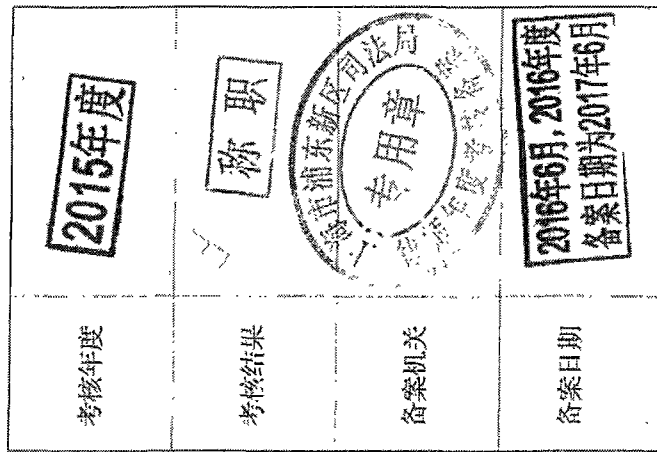 考核年度
2015年度
考核结果
称职
备案机关
上海市浦东新区司法局
专用章
备案日期
2016年6月,2016年度
备案日期为2017年6月